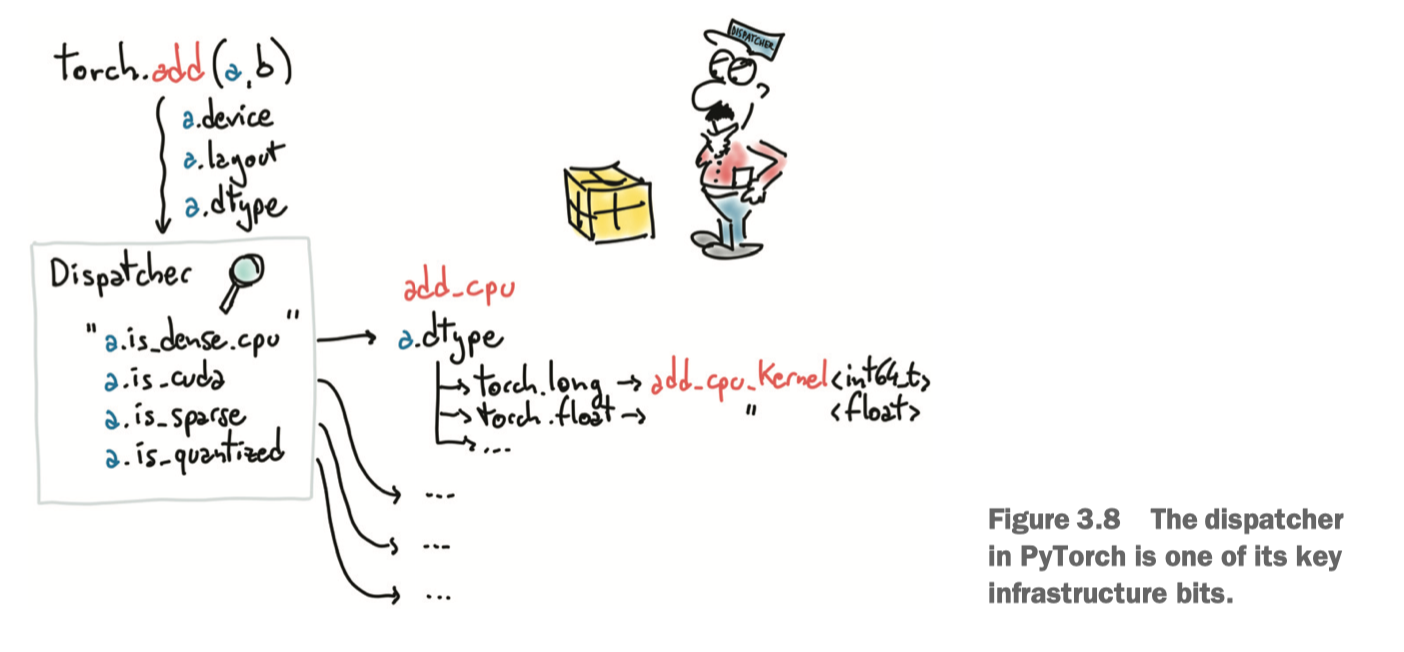 DISPATCHER
torch.add(a,b)
a.device
a.layout
a.dtype
Dispatcher
"a.is_dense.cpu"
a.is_cuda
a.is_sparse
a.is_quantized
add_cpu
a.dtype
torch.long → add_cpu_kernel<int64_t>
torch.float → " <float>
...
...
...
...
Figure 3.8 The dispatcher
in PyTorch is one of its key
infrastructure bits.